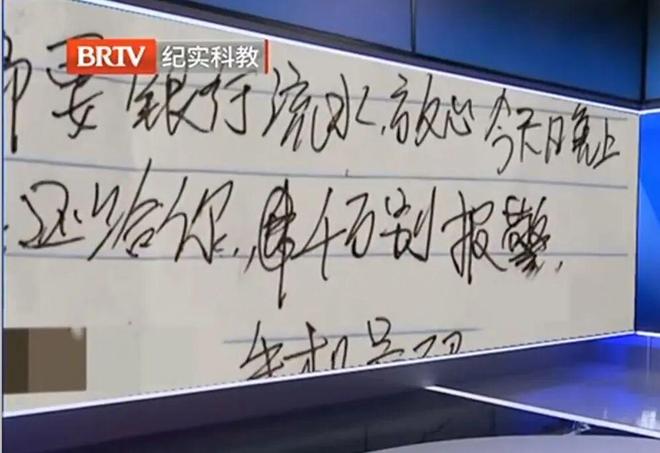 BRTV 纪实科教
要银行流水,放心今天晚上
还给你,千万别报警,
手机号码